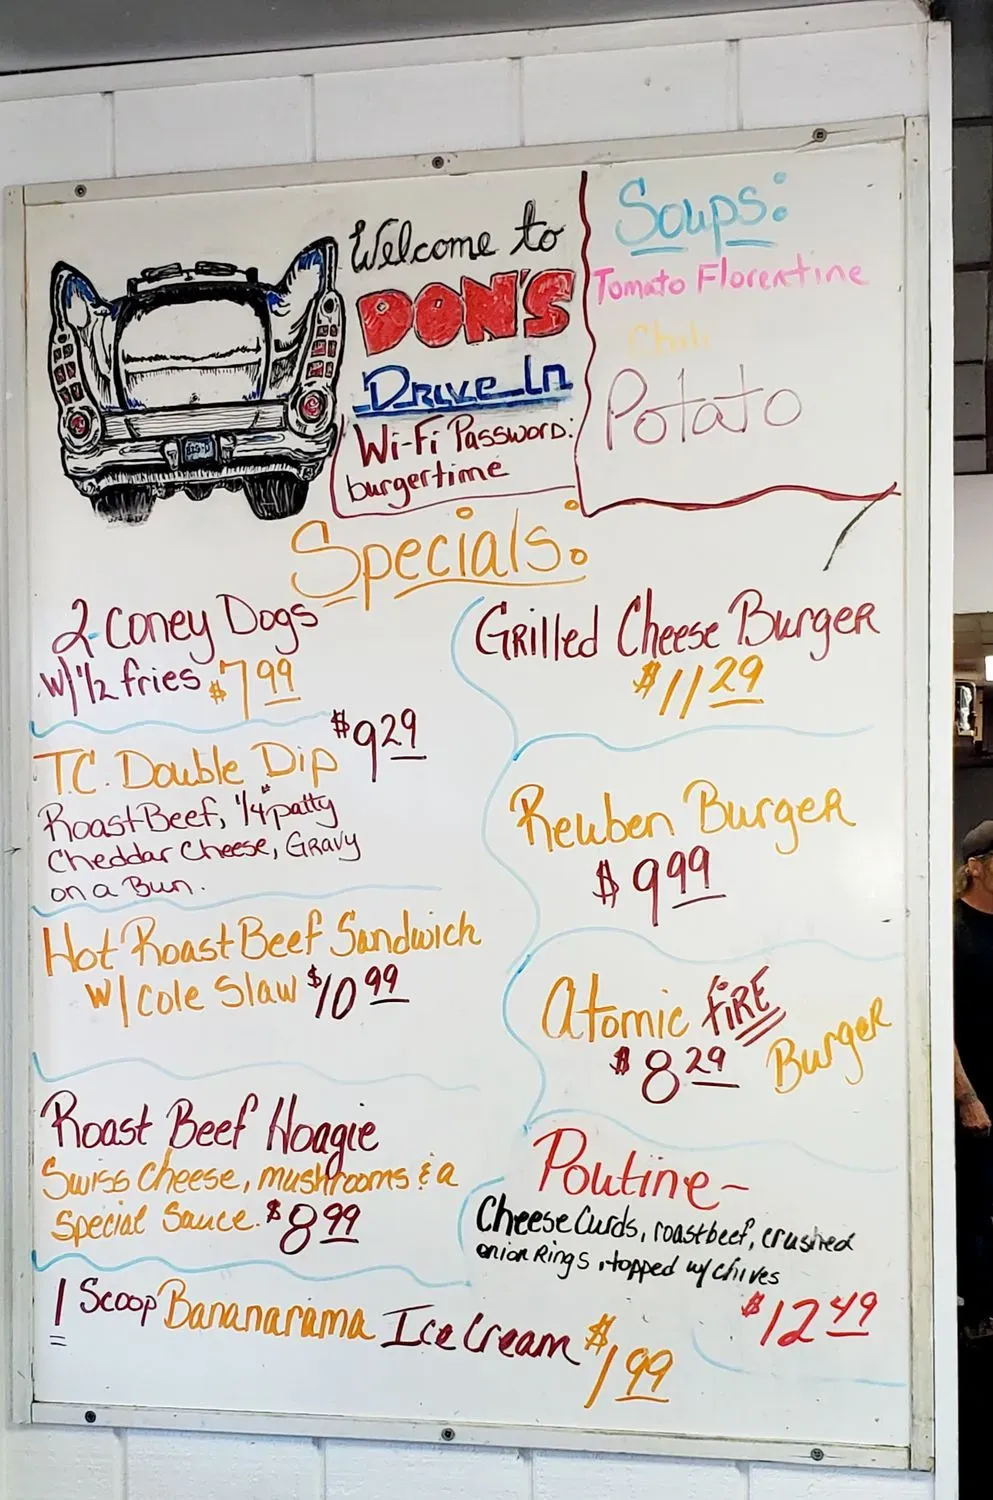 Welcome to
DON'S
Drive In
Wi-Fi Password:
burgertime
Soups:
Tomato Florentine
Chili
Potato
Specials:
2 Coney Dogs
w/ 1/2 fries $7.99
T.C. Double Dip $9.29
Roast Beef, 1/4# patty
Cheddar Cheese, Gravy
on a Bun.
Hot Roast Beef Sandwich
w/ Cole Slaw $10.99
Roast Beef Hoagie
Swiss Cheese, mushrooms & a
Special Sauce. $8.99
1 Scoop Bananarama Ice Cream $1.99
Grilled Cheese Burger
$11.29
Reuben Burger
$9.99
Atomic FIRE
Burger
$8.29
Poutine -
Cheese Curds, roast beef, crushed
onion Rings, topped w/ chives
$12.49